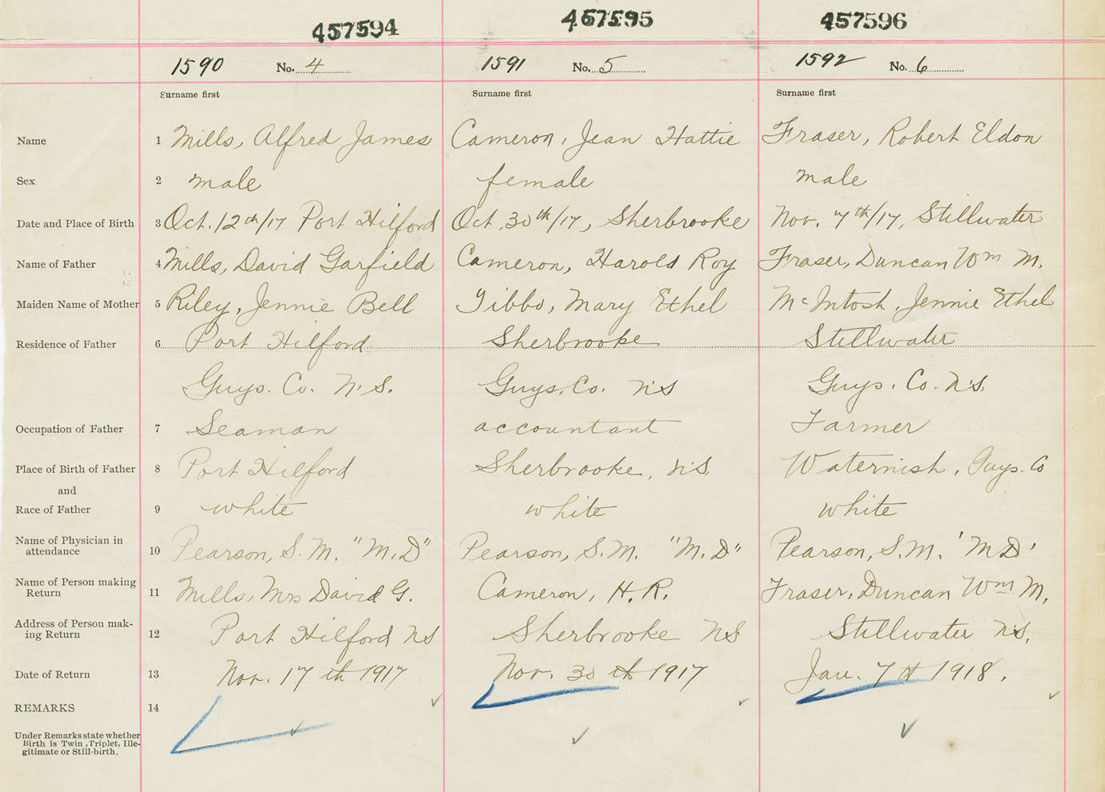 457594 457595 457596
1590 No. 4 1591 No. 5 1592 No. 6
Surname first Surname first Surname first
Name 1 Mills, Alfred James Cameron, Jean Hattie Fraser, Robert Eldon
Sex 2 male female male
Date and Place of Birth 3 Oct. 12th/17 Port Hilford Oct. 30th/17, Sherbrooke Nov. 7th/17, Stillwater
Name of Father 4 Mills, David Garfield Cameron, Harold Roy Fraser, Duncan Wm M.
Maiden Name of Mother 5 Riley, Jennie Bell Gibbs, Mary Ethel McIntosh, Jennie Ethel
Residence of Father 6 Port Hilford Sherbrooke Stillwater
Guys. Co. N.S. Guys. Co. NS Guys. Co. N.S
Occupation of Father 7 Seaman accountant Farmer
Place of Birth of Father 8 Port Hilford Sherbrooke, NS Waternish, Guys. Co
and
Race of Father 9 white white white
Name of Physician in
attendance 10 Pearson, S. M. "M.D" Pearson, S.M. "M.D" Pearson, S.M. 'M.D'
Name of Person making
Return 11 Mills, Mrs David G. Cameron, H. R. Fraser, Duncan Wm M.
Address of Person mak-
ing Return 12 Port Hilford NS Sherbrooke NS Stillwater N.S.
Date of Return 13 Nov. 17th 1917 Nov. 30th 1917 Jan. 7th 1918.
REMARKS 14
Under Remarks state whether
Birth is Twin, Triplet, Ille-
gitimate or Still-birth.